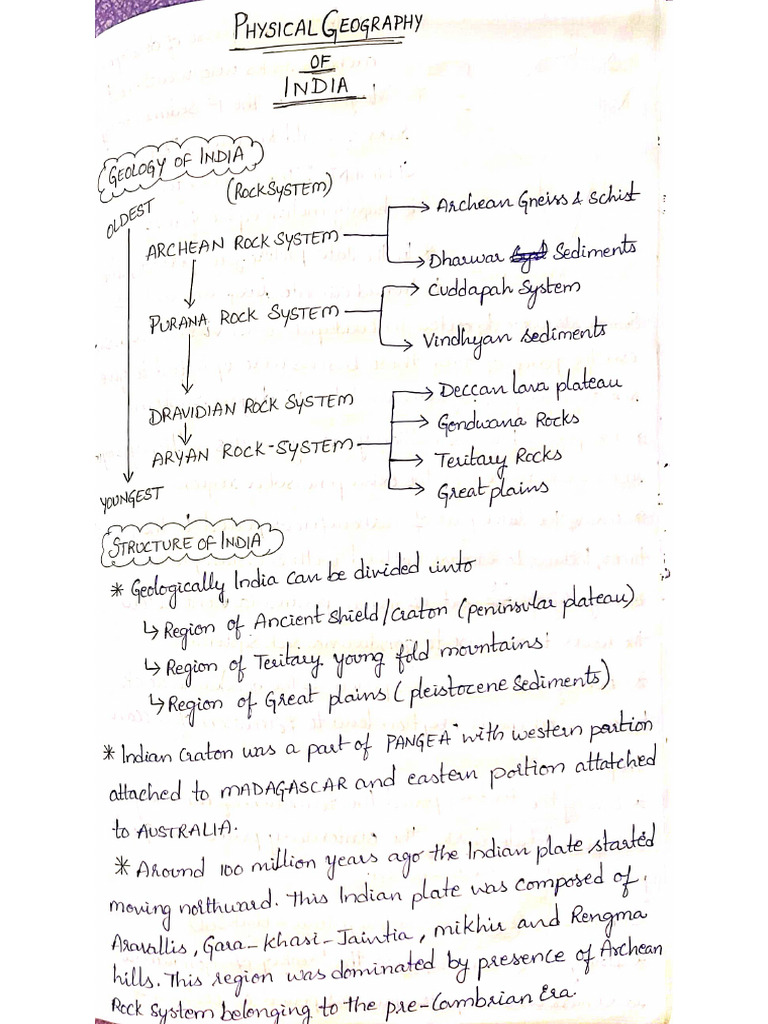 PHYSICAL GEOGRAPHY
OF
INDIA
GEOLOGY OF INDIA
(ROCK SYSTEM)
OLDEST
ARCHEAN ROCK SYSTEM
Archean Gneiss & Schist
Dharwar Sediments
PURANA ROCK SYSTEM
Cuddapah System
Vindhyan sediments
DRAVIDIAN ROCK SYSTEM
ARYAN ROCK-SYSTEM
Deccan lava plateau
Gondwana Rocks
Teritary Rocks
Great plains
YOUNGEST
STRUCTURE OF INDIA
* Geologically India can be divided into
↳ Region of Ancient Shield/Craton (peninsular plateau)
↳ Region of Teritary young fold mountains
↳ Region of Great plains (pleistocene sediments)
* Indian Craton was a part of PANGEA with western portion
attached to MADAGASCAR and eastern portion attatched
to AUSTRALIA.
* Around 100 million years ago the Indian plate started
moving northward. This Indian plate was composed of
Aravallis, Gara-Khasi-Jaintia, mikhir and Rengma
hills. This region was dominated by presence of Archean
Rock System belonging to the pre-Cambrian Era.